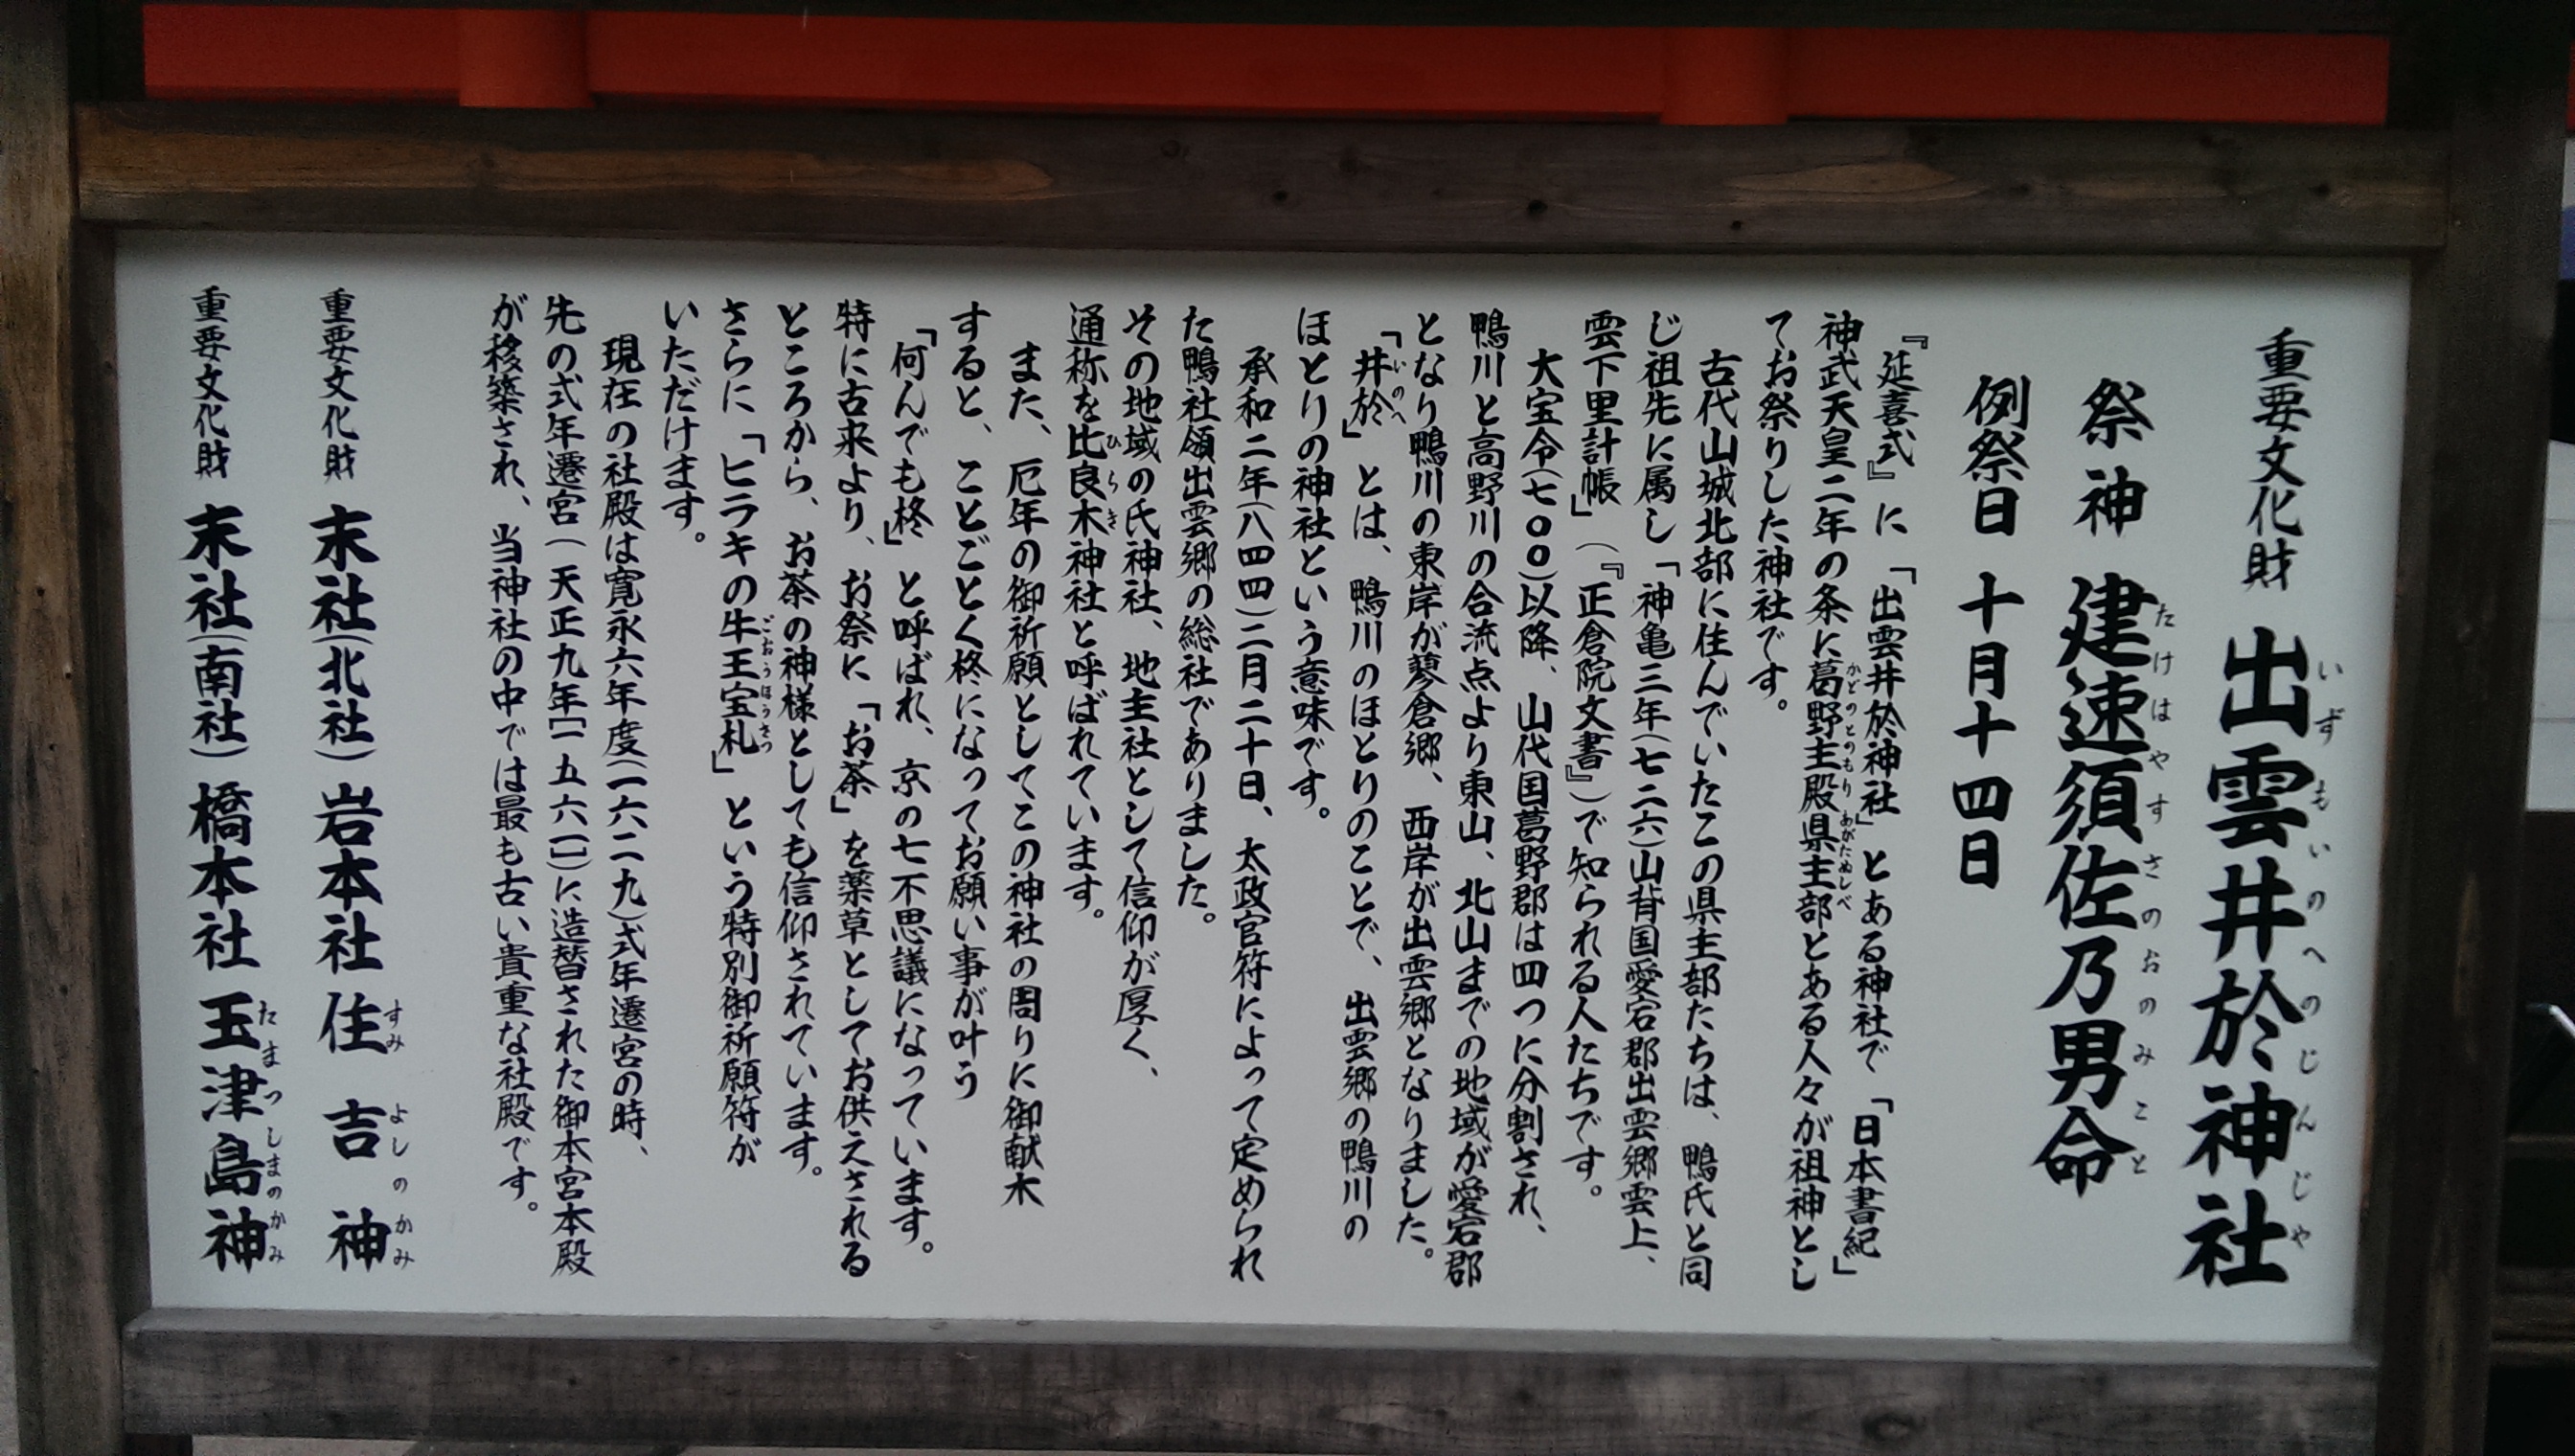 重要文化財 出雲井於神社
祭神 建速須佐乃男命
例祭日 十月十四日
『延喜式』に「出雲井於神社」とある神社で「日本書紀」
神武天皇二年の条に葛野主殿県主部とある人々が祖神とし
てお祭りした神社です。
古代山城北部に住んでいたこの県主部たちは、鴨氏と同
じ祖先に属し「神亀三年(七二六)山背国愛宕郡出雲郷雲上、
雲下里計帳」(『正倉院文書』)で知られる人たちです。
大宝令(七〇〇)以降、山代国葛野郡は四つに分割され、
鴨川と高野川の合流点より東山、北山までの地域が愛宕郡
となり鴨川の東岸が蓼倉郷、西岸が出雲郷となりました。
「井於」とは、鴨川のほとりのことで、出雲郷の鴨川の
ほとりの神社という意味です。
承和二年(八四四)二月二十日、太政官符によって定められ
た鴨社領出雲郷の総社でありました。
その地域の氏神社、地主社として信仰が厚く、
通称を比良木神社と呼ばれています。
また、厄年の御祈願としてこの神社の周りに御献木
すると、ことごとく柊になってお願い事が叶う
「何んでも柊」と呼ばれ、京の七不思議になっています。
特に古来より、お祭に「お茶」を薬草としてお供えされる
ところから、お茶の神様としても信仰されています。
さらに「ヒラキの牛王宝札」という特別御祈願符が
いただけます。
現在の社殿は寛永六年度(一六二九)式年遷宮の時、
先の式年遷宮(天正九年[一五八一])に造替された御本宮本殿
が移築され、当神社の中では最も古い貴重な社殿です。
重要文化財 末社(北社) 岩本社 住吉神
重要文化財 末社(南社) 橋本社 玉津島神